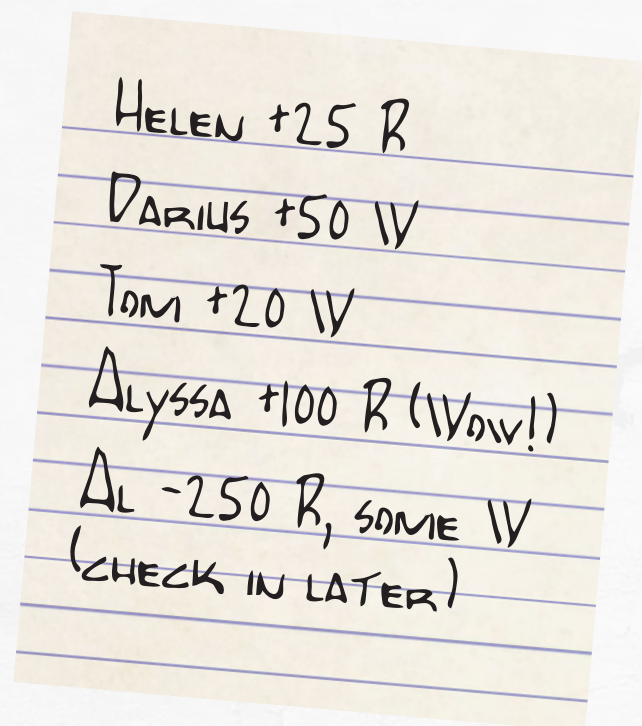 Helen +25 R
Darius +50 W
Tom +20 W
Alyssa +100 R (Wow!)
Al -250 R, some W
(check in later)